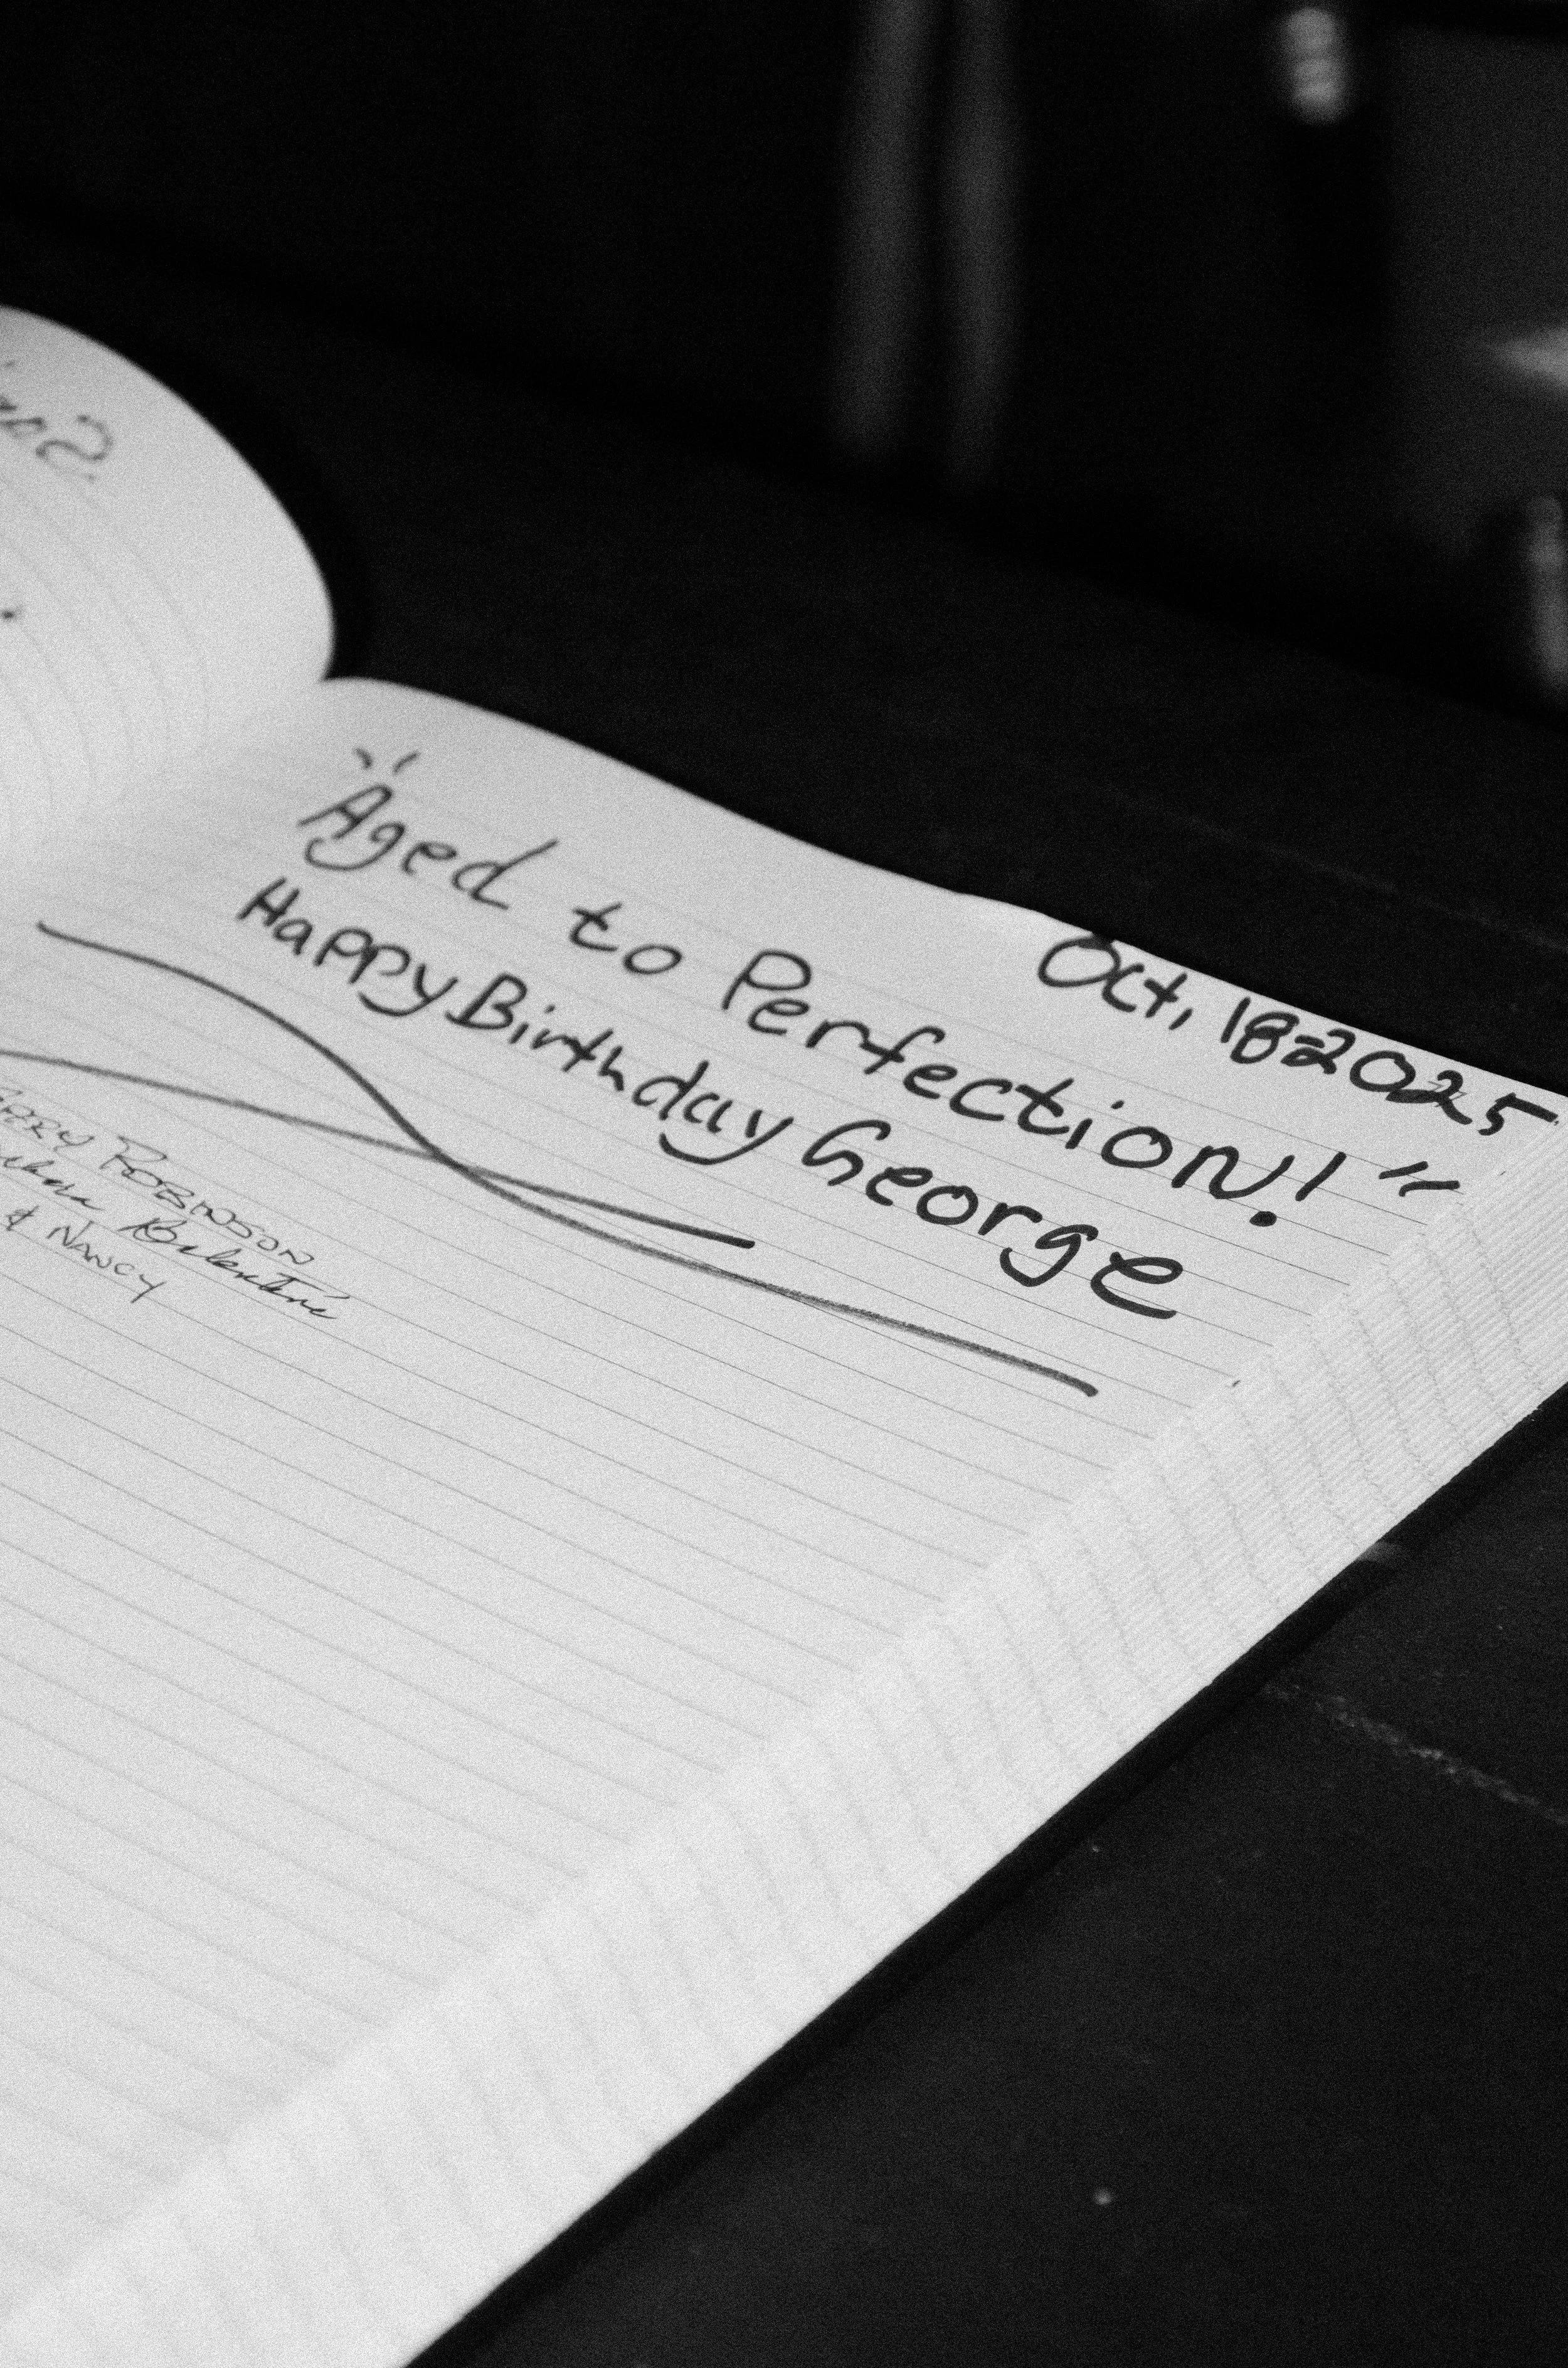 Oct, 18 2025
"Aged to Perfection!"
Happy Birthday George
ROBINSON
& NANCY